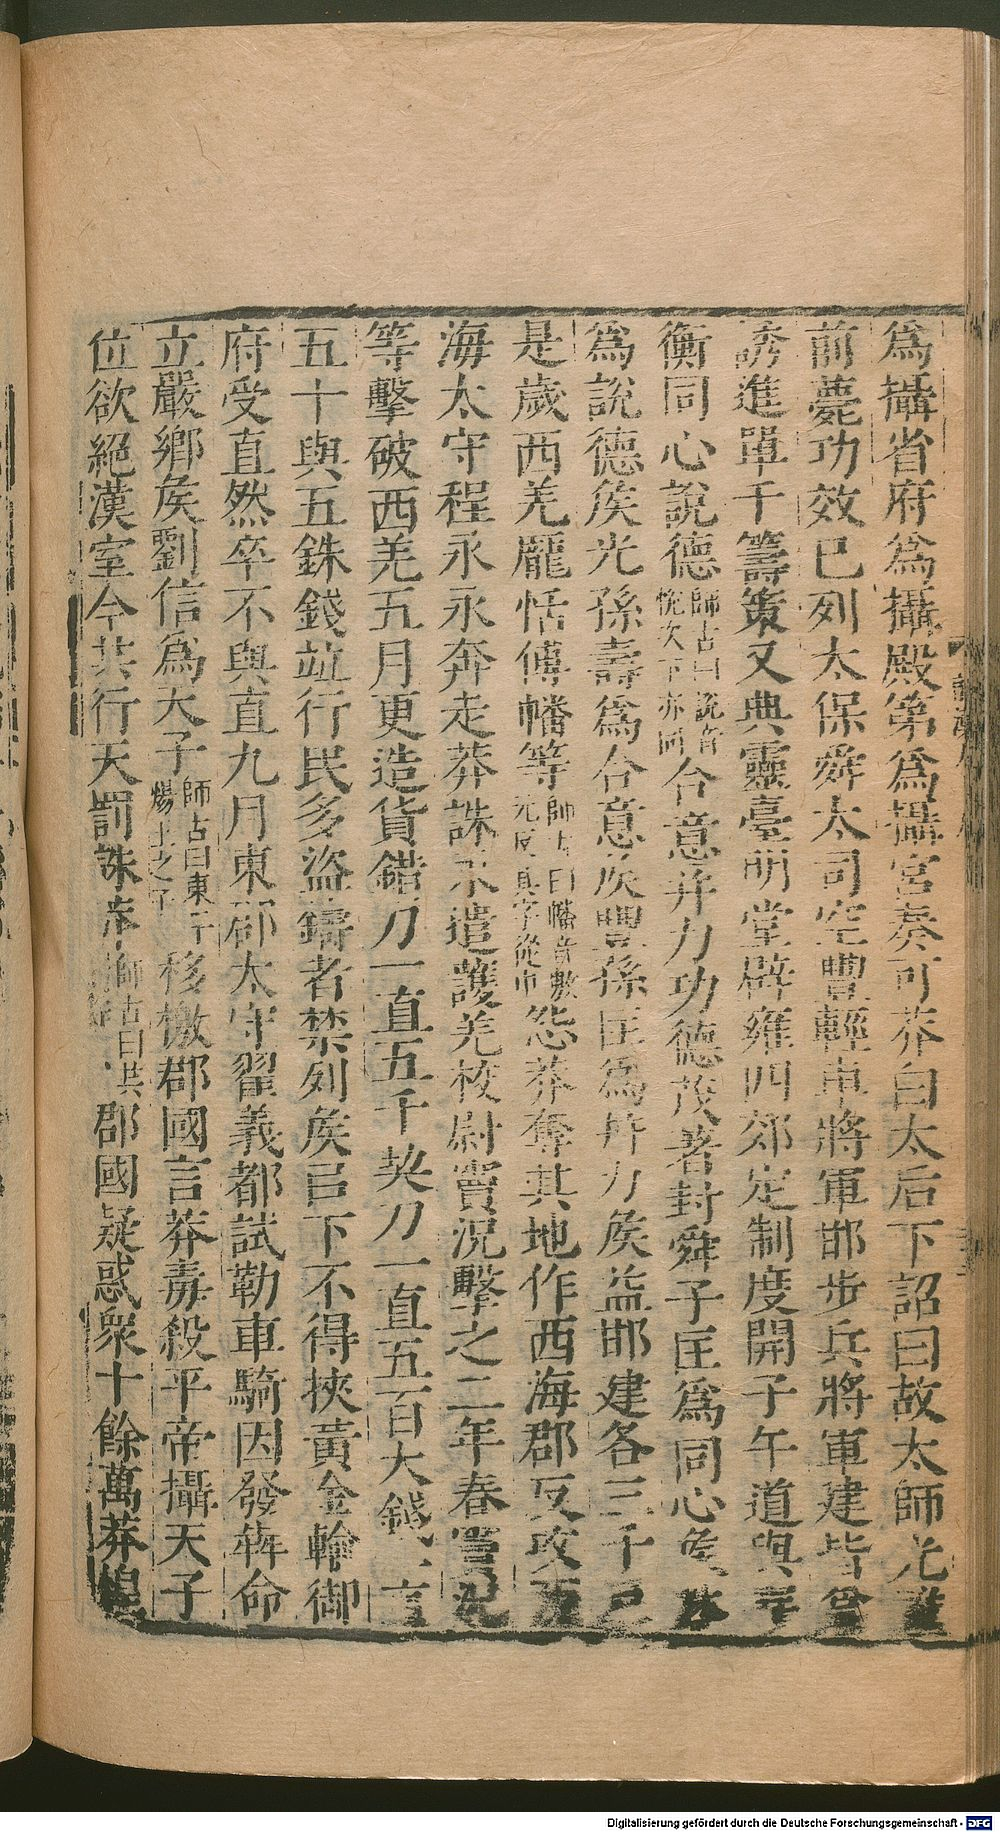 為攝省府為攝殿第為攝宮奏可莽白太后下詔曰故太師光雖
前薨功效已列太保舜太司空豐輕車將軍邯步兵將軍建皆為
誘進單于籌策又典靈臺明堂辟雍四郊定制度開子午道與宰
衡同心說德師古曰說音悅次下亦同合意并力功德茂著封舜子匡為同心侯林
為說德侯光孫壽為合意侯豐孫匡為并力侯益邯建各三千戶
是歲西羌龐恬傅幡等師古曰幡音敷元反其字從巾怨莽奪其地作西海郡反攻西
海太守程永永奔走莽誅永遣護羌校尉竇況擊之二年春竇況
等擊破西羌五月更造貨錯刀一直五千契刀一直五百大錢一直
五十與五銖錢竝行民多盜鑄者禁列侯已下不得挾黃金輸御
府受直然卒不與直九月東郡太守翟義都試勒車騎因發犇命
立嚴鄉侯劉信為天子師古曰東平煬王之子移檄郡國言莽毒殺平帝攝天子
位欲絕漢室今共行天罰誅莽師古曰共郡國疑惑眾十餘萬莽惶
Digitalisierung gefördert durch die Deutsche Forschungsgemeinschaft - DFG